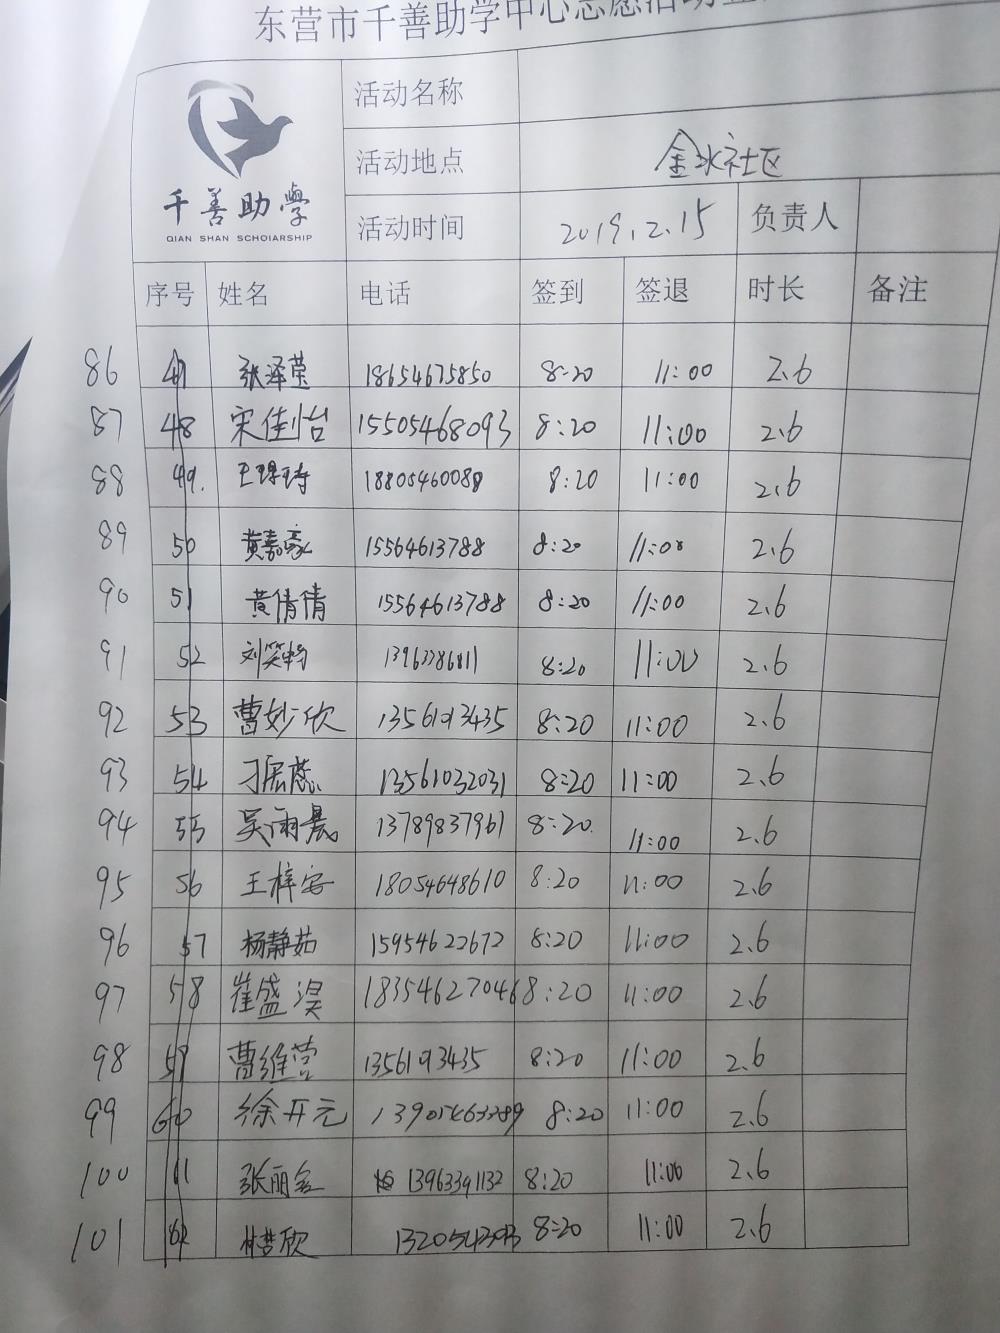 东营市千善助学中心志愿活动
千善助學
QIAN SHAN SCHOIARSHIP
活动名称
活动地点 金水社区
活动时间 2019.2.15 负责人
序号 姓名 电话 签到 签退 时长 备注
86 47 张泽莹 18654675850 8:20 11:00 2.6
87 48 宋佳怡 15505468093 8:20 11:00 2.6
88 49. 18805460088 8:20 11:00 2.6
89 50 黄嘉豪 15564613788 8:20 11:00 2.6
90 51 黄倩倩 15564613788 8:20 11:00 2.6
91 52 8:20 11:00 2.6
92 53 曹妙欣 8:20 11:00 2.6
93 54 13561032031 8:20 11:00 2.6
94 55 吴雨晨 13789837961 8:20. 11:00 2.6
95 56 王梓安 18054648610 8:20 11:00 2.6
96 57 杨静茹 15954622672 8:20 11:00 2.6
97 58 崔盛淏 18354627046 8:20 11:00 2.6
98 59 曹维营 8:20 11:00 2.6
99 60 徐开元 8:20 11:00 2.6
100 61 13963391132 8:20 11:00 2.6
101 62 8:20 11:00 2.6